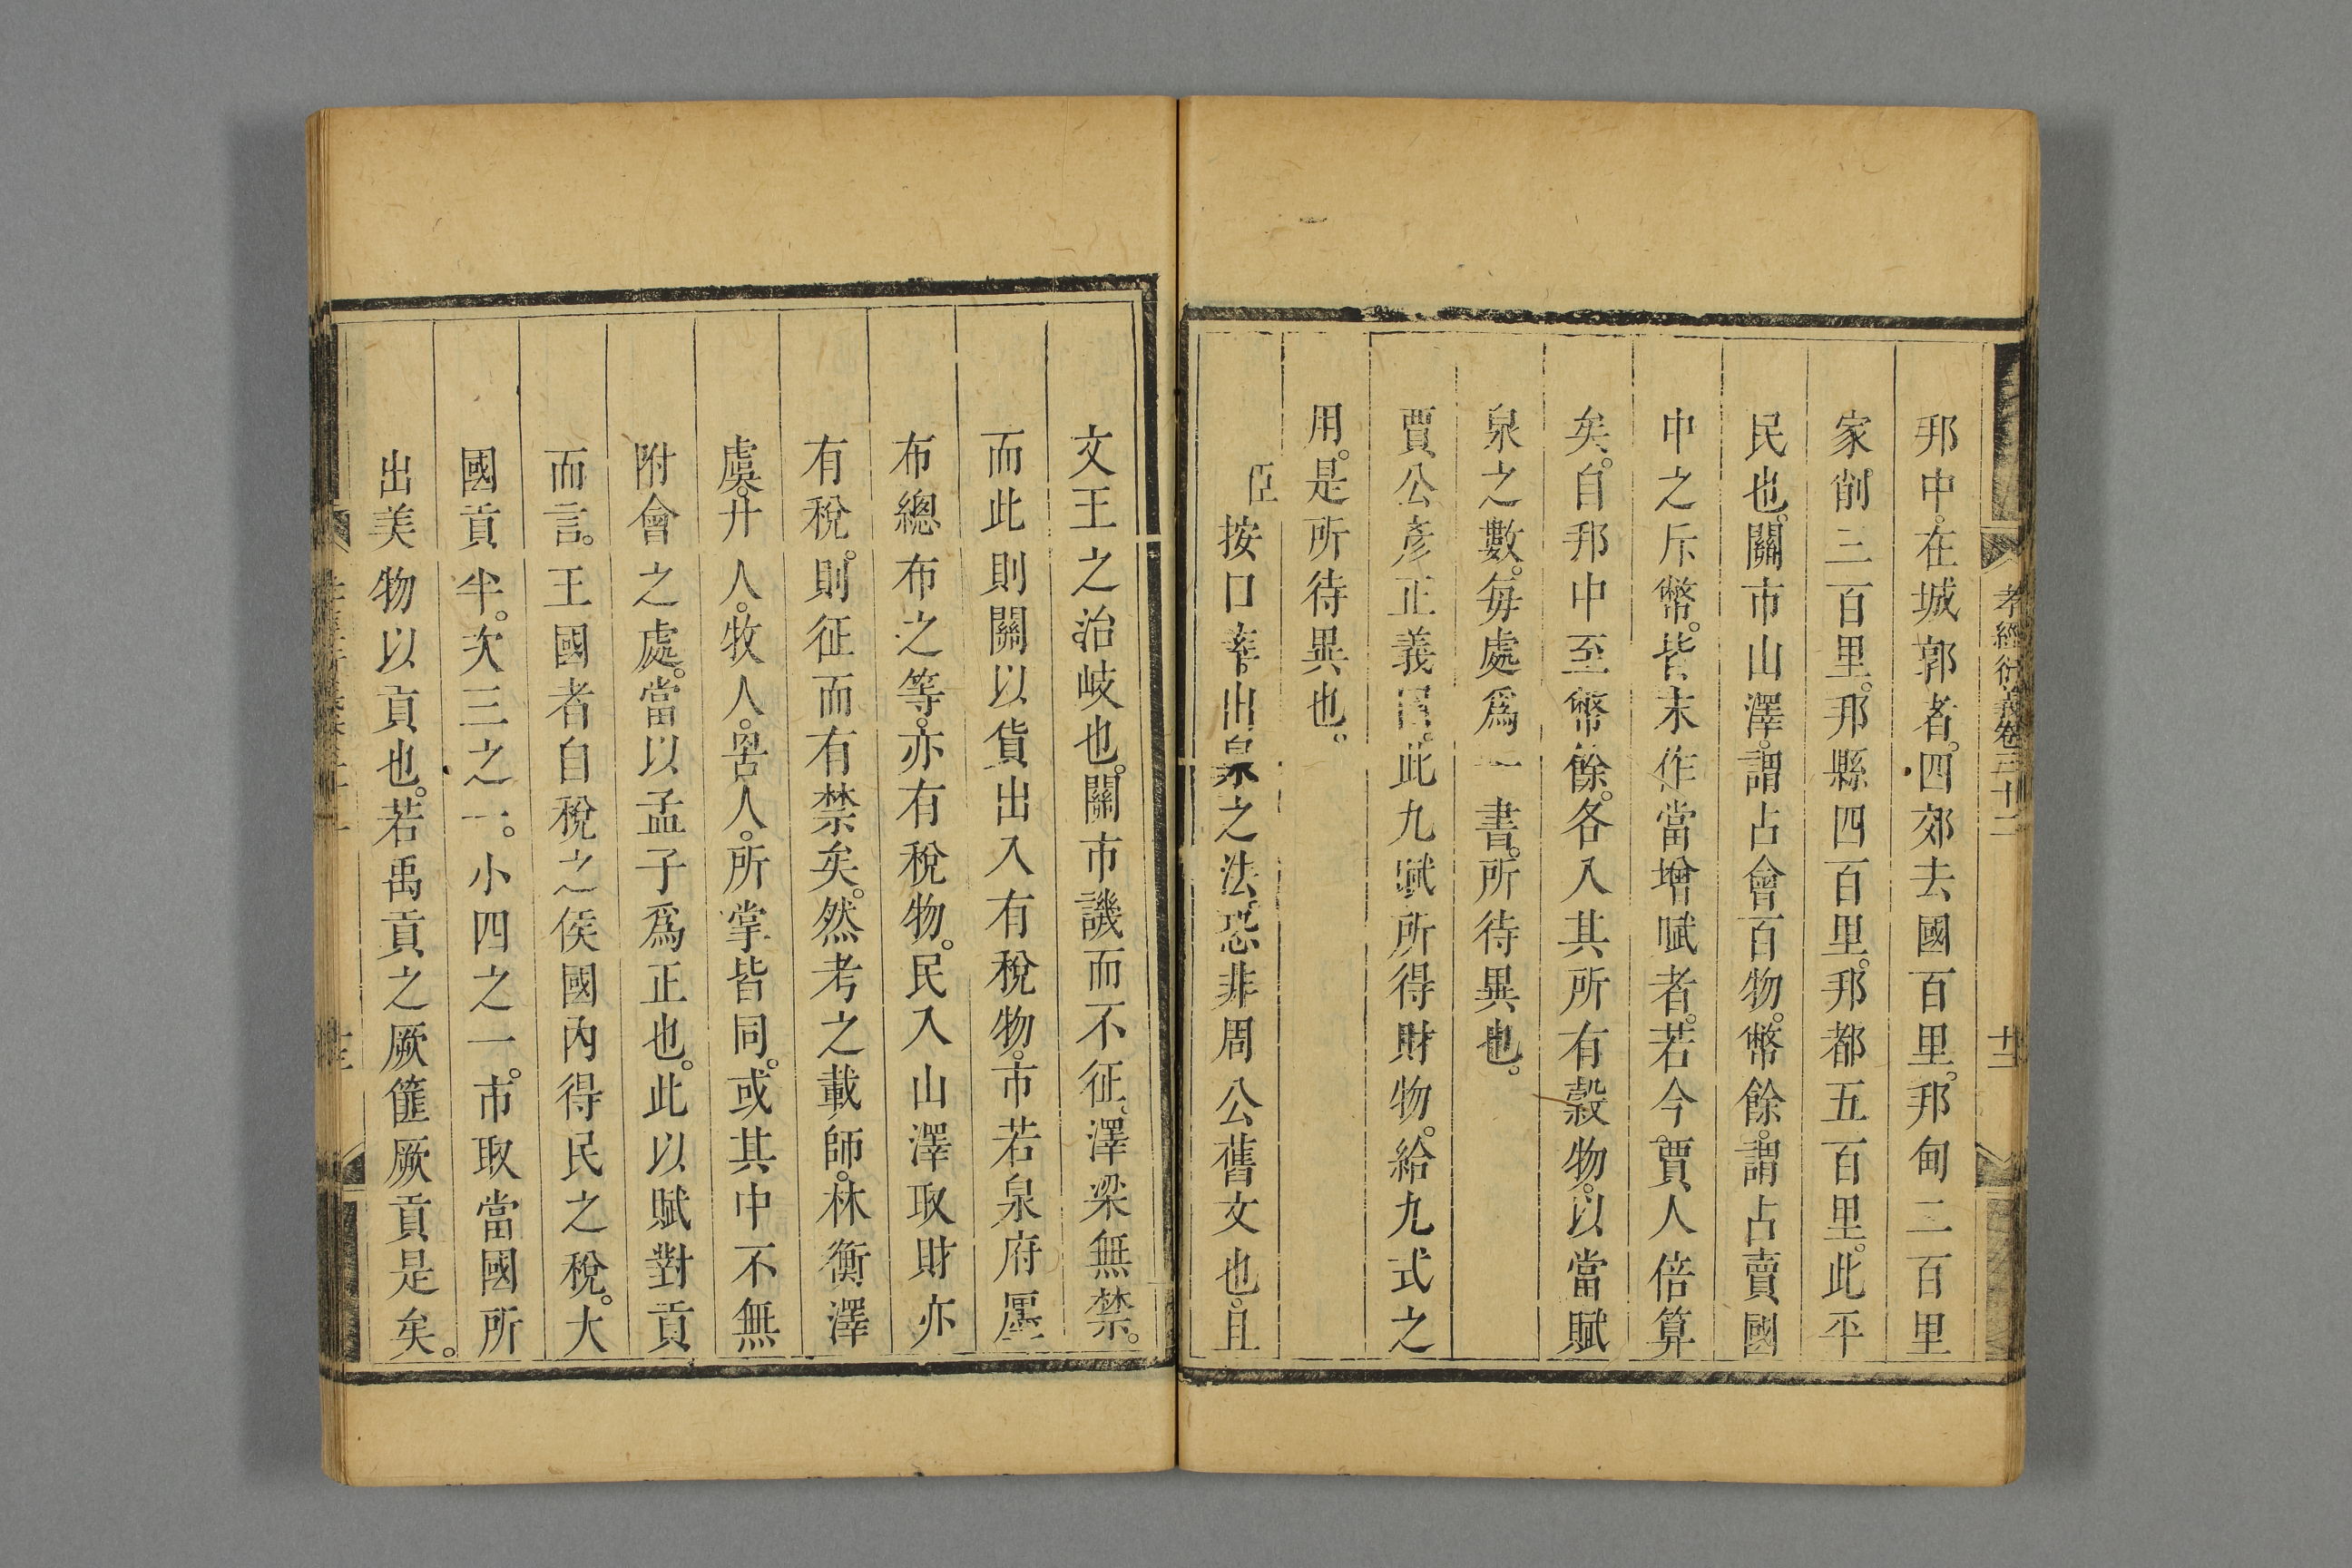 孝經衍義卷三十二
十二
邦中。在城郭者。四郊去國百里。邦甸二百里
家削三百里。邦縣四百里。邦都五百里。此平
民也。關市山澤。謂占會百物。幣餘。謂占賣國
中之斥幣。皆末作當增賦者。若今賈人倍算
矣。自邦中至幣餘。各入其所有穀物。以當賦
泉之數。每處爲一書。所待異也。
賈公彥正義曰。此九賦所得財物。給九式之
用。是所待異也。
臣按口率出泉之法。恐非周公舊文也。且
文王之治岐也。關市譏而不征、澤梁無禁。
而此則關以貨出入有稅物。市若泉府廛
布總布之等。亦有稅物。民入山澤取財亦
有稅。則征而有禁矣。然考之載師。林衡澤
虞。廾人。牧人。罟人。所掌皆同。或其中不無
附會之處。當以孟子爲正也。此以賦對貢
而言。王國者自稅之侯國內得民之稅。大
國貢半。次三之一。小四之一。市取當國所
出美物以貢也。若禹貢之厥篚厥貢是矣。